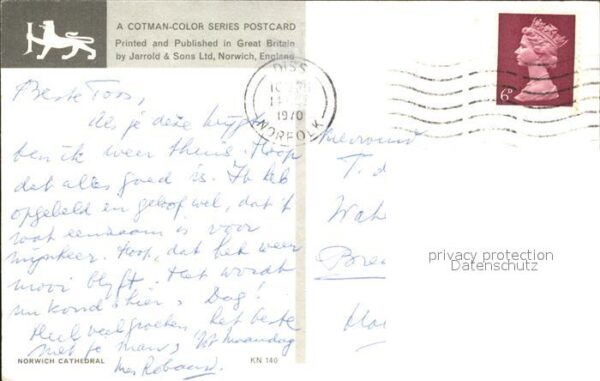 A COTMAN-COLOR SERIES POSTCARD
Printed and Published in Great Britain
by Jarrold & Sons Ltd, Norwich, England
DISS
1970
NORFOLK
6D
Beste Toos,
Als je deze krijgt
ben ik weer thuis. Hoop
dat alles goed is. Ik heb
opgebeld en geloof wel, dat 't
wat eenzaam is voor
mijnheer. Hoop, dat het weer
mooi blijft. Het wordt
hier. Dag!
Heel veel groeten het beste
met je man, tot maandag
Mevrouw
T. d
Bore
privacy protection
Datenschutz
NORWICH CATHEDRAL
KN 140